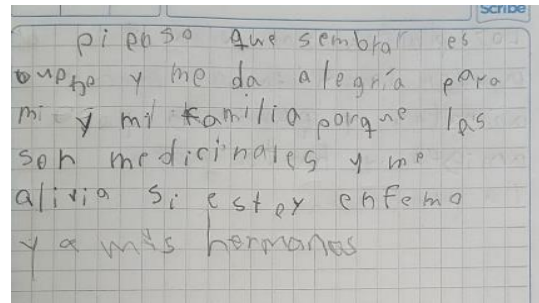 Scribe
pienso que sembrar es
bueno y me da alegría para
mi y mi familia porque las
son medicinales y me
alivia si estoy enfemo
y a mis hermanos